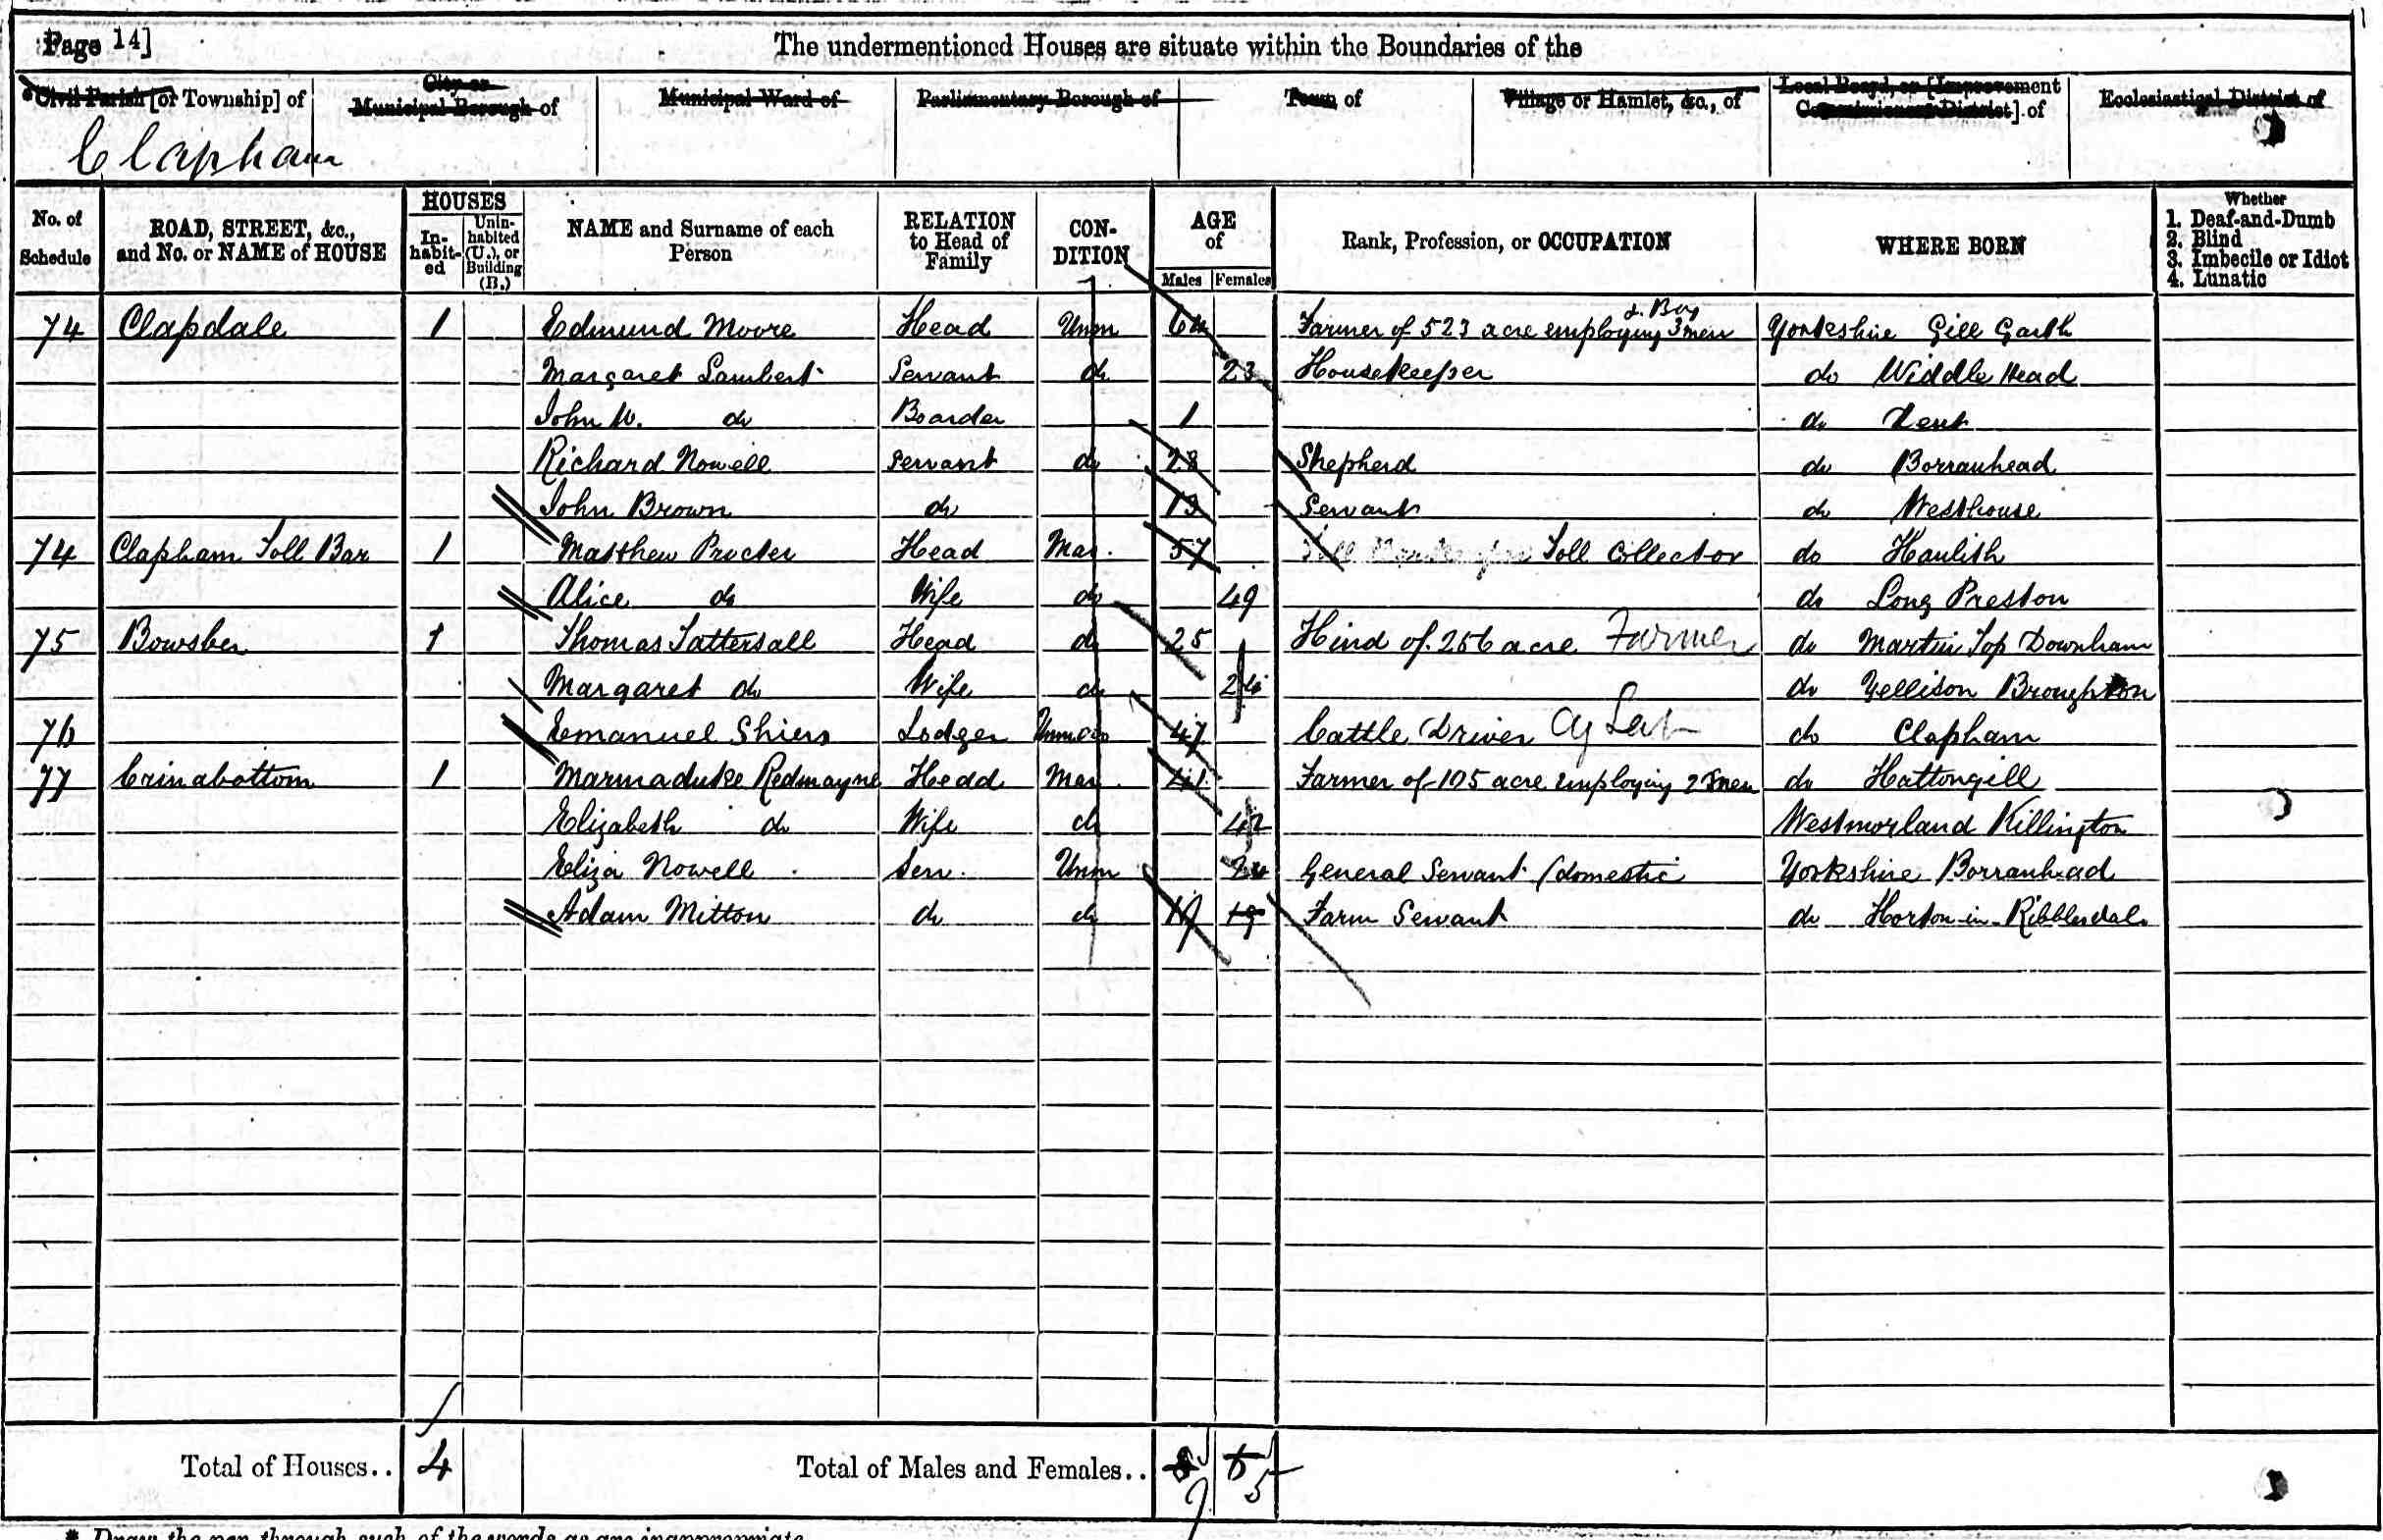 Page 14]
The undermentioned Houses are situate within the Boundaries of the
Civil Parish [or Township] of
City or Municipal Borough of
Municipal Ward of
Parliamentary Borough of
Town of
Village or Hamlet, &c., of
Local Board, or [Improvement Commissioners District] of
Ecclesiastical District of
Clapham
No. of Schedule
ROAD, STREET, &c., and No. or NAME of HOUSE
HOUSES
In-habit-ed
Unin-habited (U.), or Building (B.)
NAME and Surname of each Person
RELATION to Head of Family
CON-DITION
AGE of
Males Females
Rank, Profession, or OCCUPATION
WHERE BORN
Whether
1. Deaf-and-Dumb
2. Blind
3. Imbecile or Idiot
4. Lunatic
& Boy
74 Clapdale 1 Edmund Moore Head Unm 64 Farmer of 523 acre employing 3 men Yorkshire Gill Garth
Margaret Lambert Servant do 23 Housekeeper do Widdle Head
John W. do Boarder 1 do Dent
Richard Nowell Servant do 28 Shepherd do Borranhead
John Brown do 13 Servant do Westhouse
74 Clapham Toll Bar 1 Matthew Procter Head Mar. 57 Toll Collector do Hanlith
Alice do Wife do 49 do Long Preston
75 Bowsber 1 Thomas Tattersall Head do 25 Hind of 256 acre Farmer do Martin Top Downham
Margaret do Wife do 24 do Gellison Broughton
76 Emanuel Shiers Lodger 47 Cattle Driver do Clapham
77 Crinabottom 1 Marmaduke Redmayne Head Mar 41 Farmer of 105 acre employing 2 men do Hattongill
Elizabeth do Wife do 42 Westmorland Killington
Eliza Nowell Serv. Unm 24 General Servant (domestic Yorkshire Borranhead
Adam Mitton do do 19 19 Farm Servant do Horton-in-Ribblesdale
Total of Houses.. 4
Total of Males and Females.. 9 5